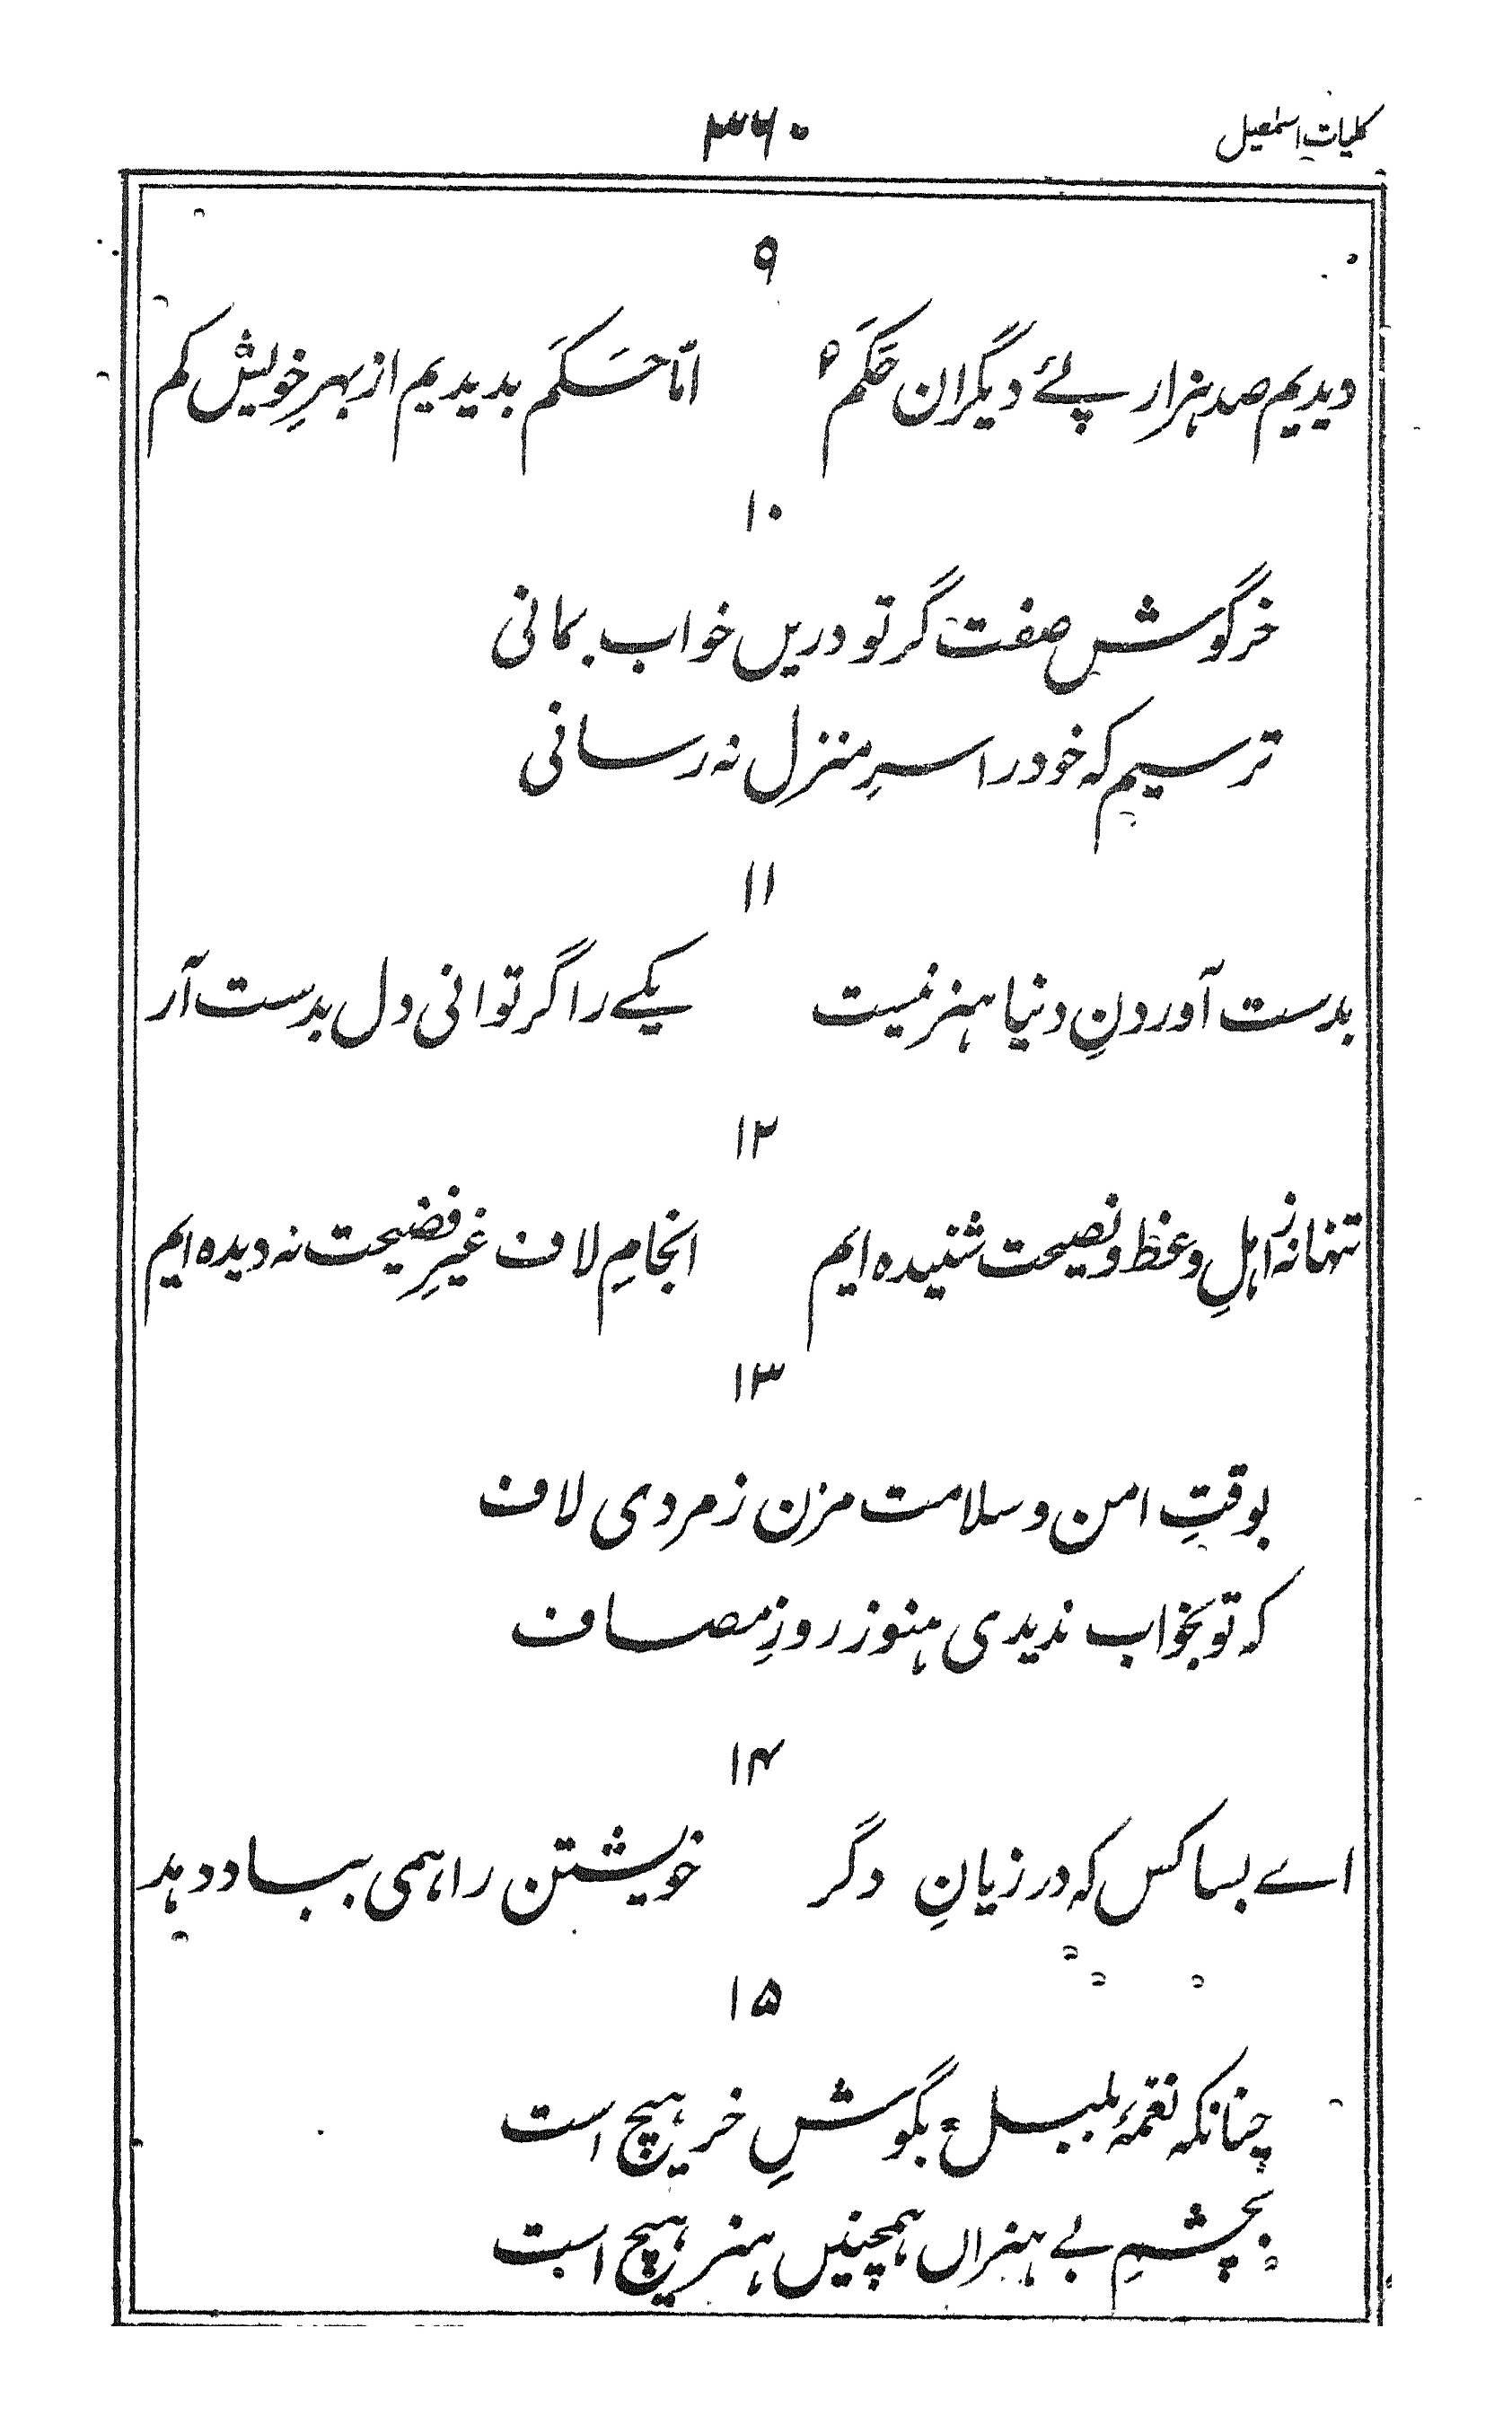 کلیاتِ اسمٰعیل
۳۶۰
۹
دیدیم صد ہزار پئے دیگران حَکَم ہ امّا حَکَم بدیدیم از بہرِ خویش کم
۱۰
خرگوش صفت گر تو دریں خواب بمانی
ترسیم کہ خود را سرِ منزل نہ رسانی
۱۱
بدست آوردنِ دنیا ہنر نیست یکے را گر توانی دل بدست آر
۱۲
تنہا نہ ز اہلِ وعظ و نصیحت شنیدہ ایم انجامِ لاف غیرِ فضیحت نہ دیدہ ایم
۱۳
بوقتِ امن و سلامت مزن ز مردی لاف
کہ تو بخواب ندیدی ہنوز روزِ مصاف
۱۴
اے بسا کس کہ در زیانِ دگر خویشتن را ہمی بباد دہد
۱۵
چنانکہ نغمۂ بلبل بگوشِ خر ہیچ است
بچشمِ بے ہنراں ہمچنیں ہنر ہیچ است